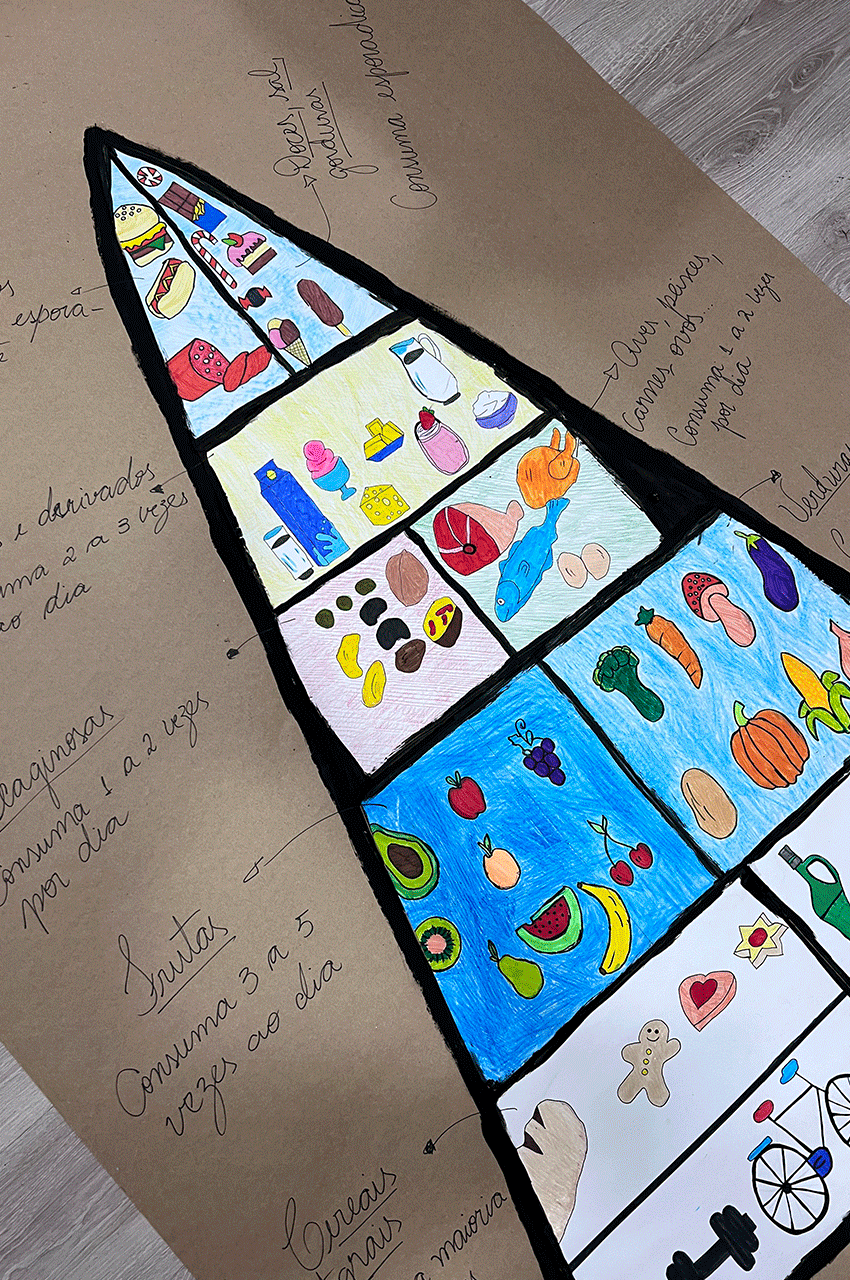 Doces, sal,
gorduras
Consuma esporadica
esporá-
Aves, peixes,
Carnes, ovos...
Consuma 1 a 2 vezes
por dia
Verduras
e derivados
2 a 3 vezes
ao dia
Consuma 1 a 2 vezes
por dia
Frutas
Consuma 3 a 5
vezes ao dia
Cereais
a maioria